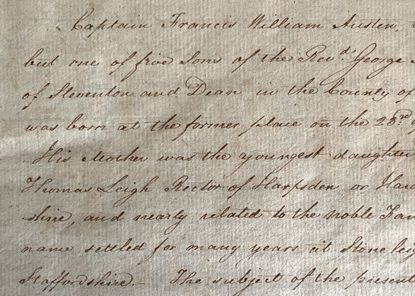 Captain Francis William Austen,
but one of five Sons of the Revd. George
of Steventon and Dean in the County of
was born at the former place on the 23rd
His Mother was the youngest daughter
Thomas Leigh Rector of Harpsden or
shire, and nearly related to the noble
name settled for many years at Stone
Staffordshire.— The subject of the present